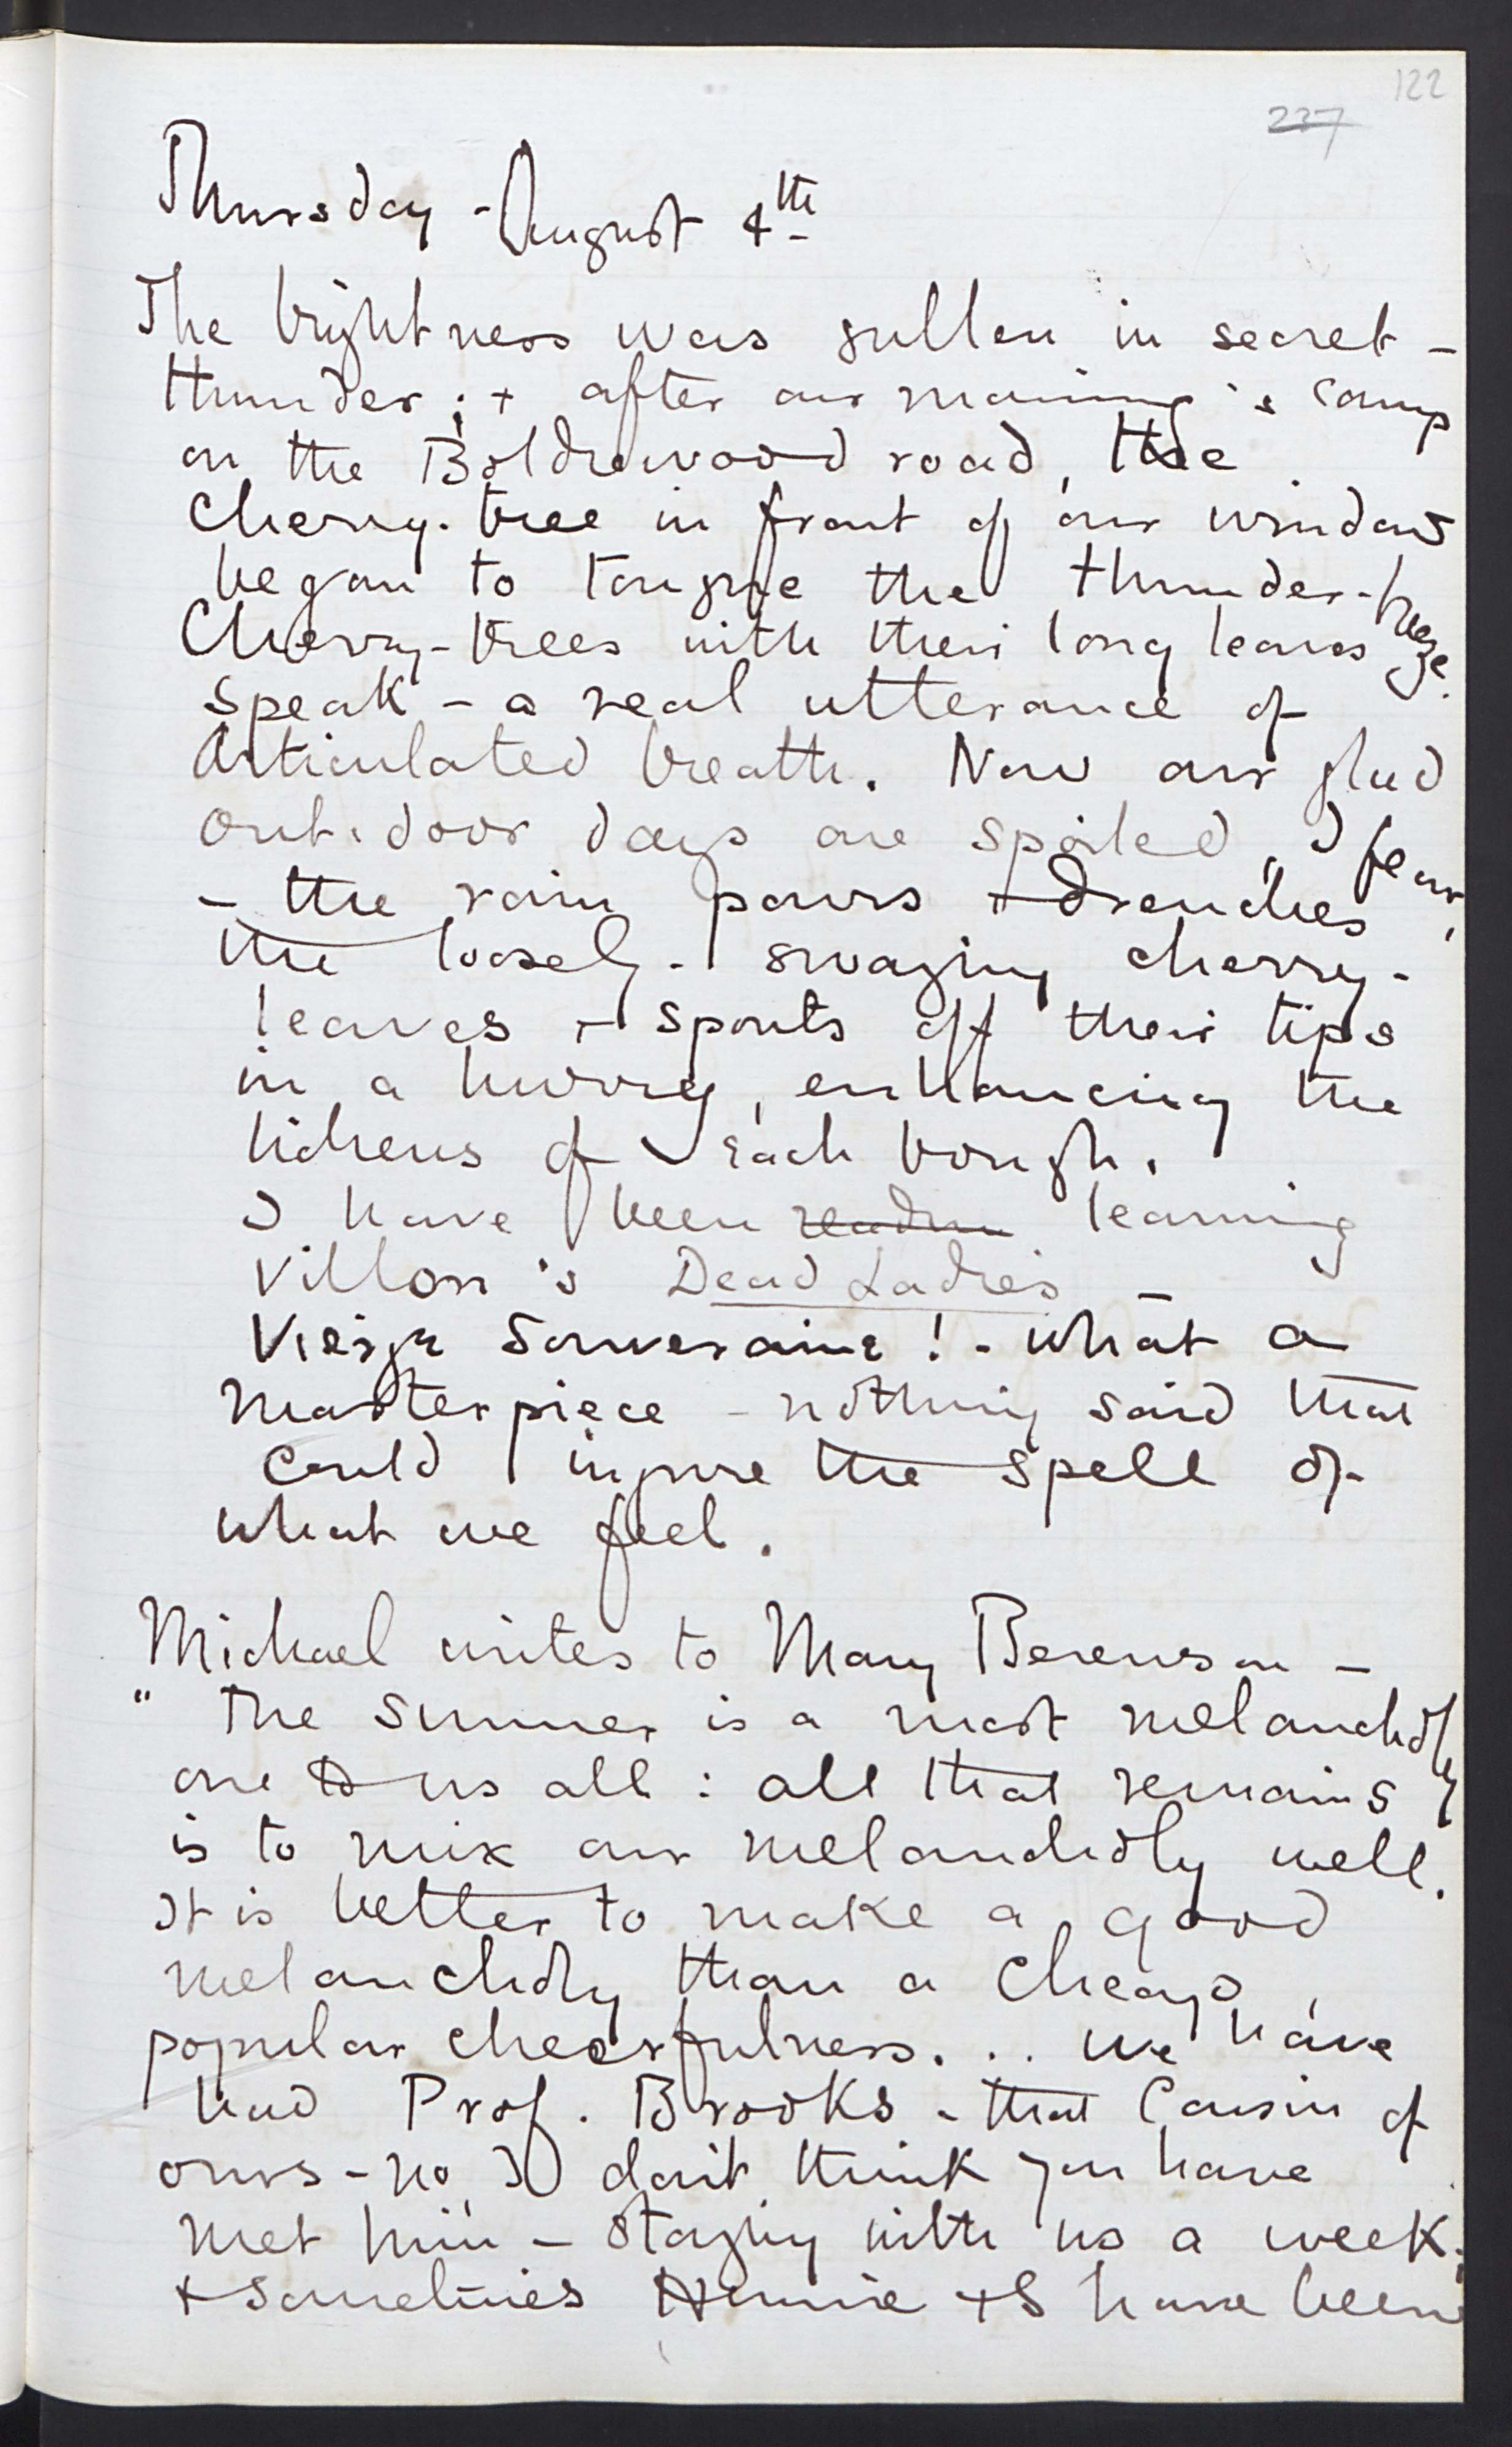 122
237
Thursday - August 4th
The brightness was sullen in secret -
thunder; + after our morning's camp
on the Boldrewood road, the
Cherry-tree in front of our windows
began to tongue the thunder-breeze.
Cherry-trees with their long leaves
speak - a real utterance of
articulated breath. Now our glad
out-door days are spoiled, I fear,
- the rain pours + drenches
the loosely-swaying cherry-
leaves + spouts off their tips
in a hurry, enhancing the
lichens of each bough.
I have been readin learning
Villon's Dead Ladies -
Vierge Souveraine! - What a
masterpiece - nothing said that
could injure the spell of
what we feel.
Michael writes to Mary Berenson -
"The Summer is a most melancholy
one to us all: all that remains
is to mix our melancholy well.
It is better to make a good
melancholy than a cheap,
popular cheerfulness... We have
had Prof. Brooks - that Cousin of
ours - no, I don't think you have
met him - staying with us a week;
+ sometimes Hennie + I have been